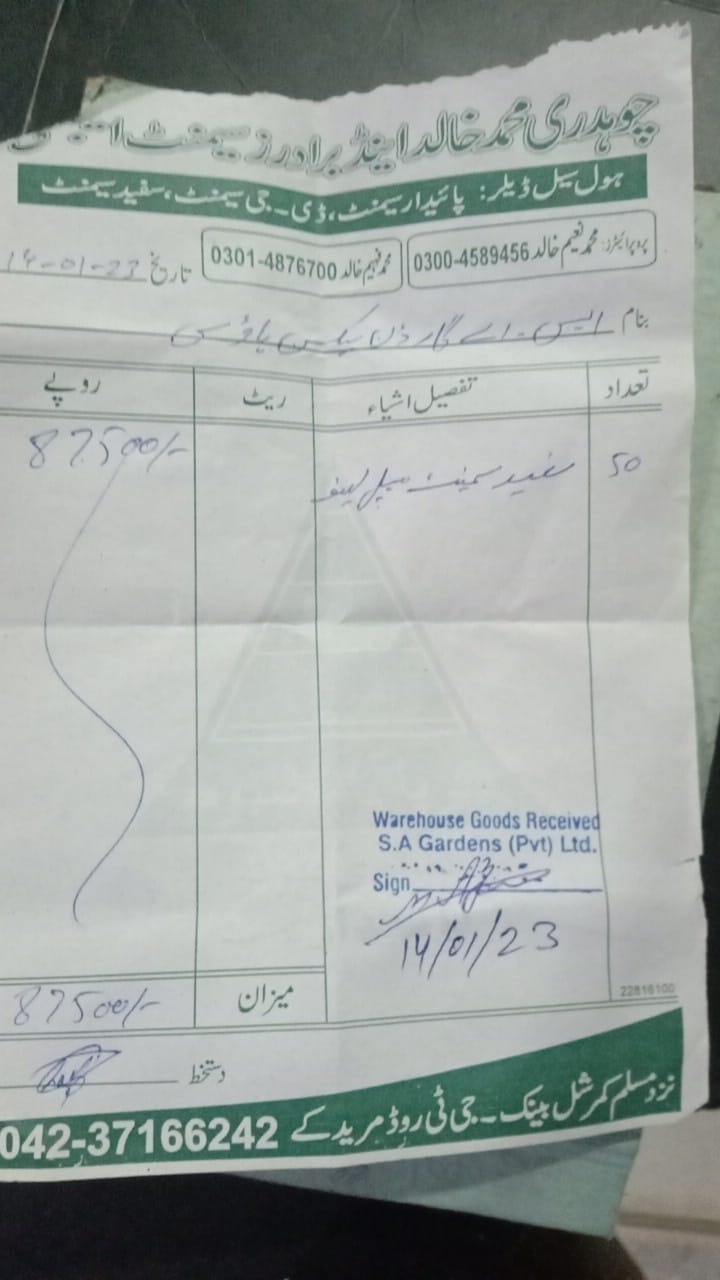 چوہدری محمد خالد اینڈ برادرز سیمنٹ
ہول سیل ڈیلر: پائیدار سیمنٹ، ڈی۔جی سیمنٹ، سفید سیمنٹ
پروپرائیٹرز: محمد نعیم خالد 0300-4589456 محمد فہیم خالد 0301-4876700 تاریخ 14-01-23
بنام ایس۔اے گارڈن
تعداد تفصیل اشیاء ریٹ روپے
50 سفید سیمنٹ میپل لیف 87500/-
Warehouse Goods Received
S.A Gardens (Pvt) Ltd.
Sign
14/01/23
22816100
میزان 87500/-
دستخط
نزد مسلم کمرشل بینک۔جی ٹی روڈ مریدکے 042-37166242